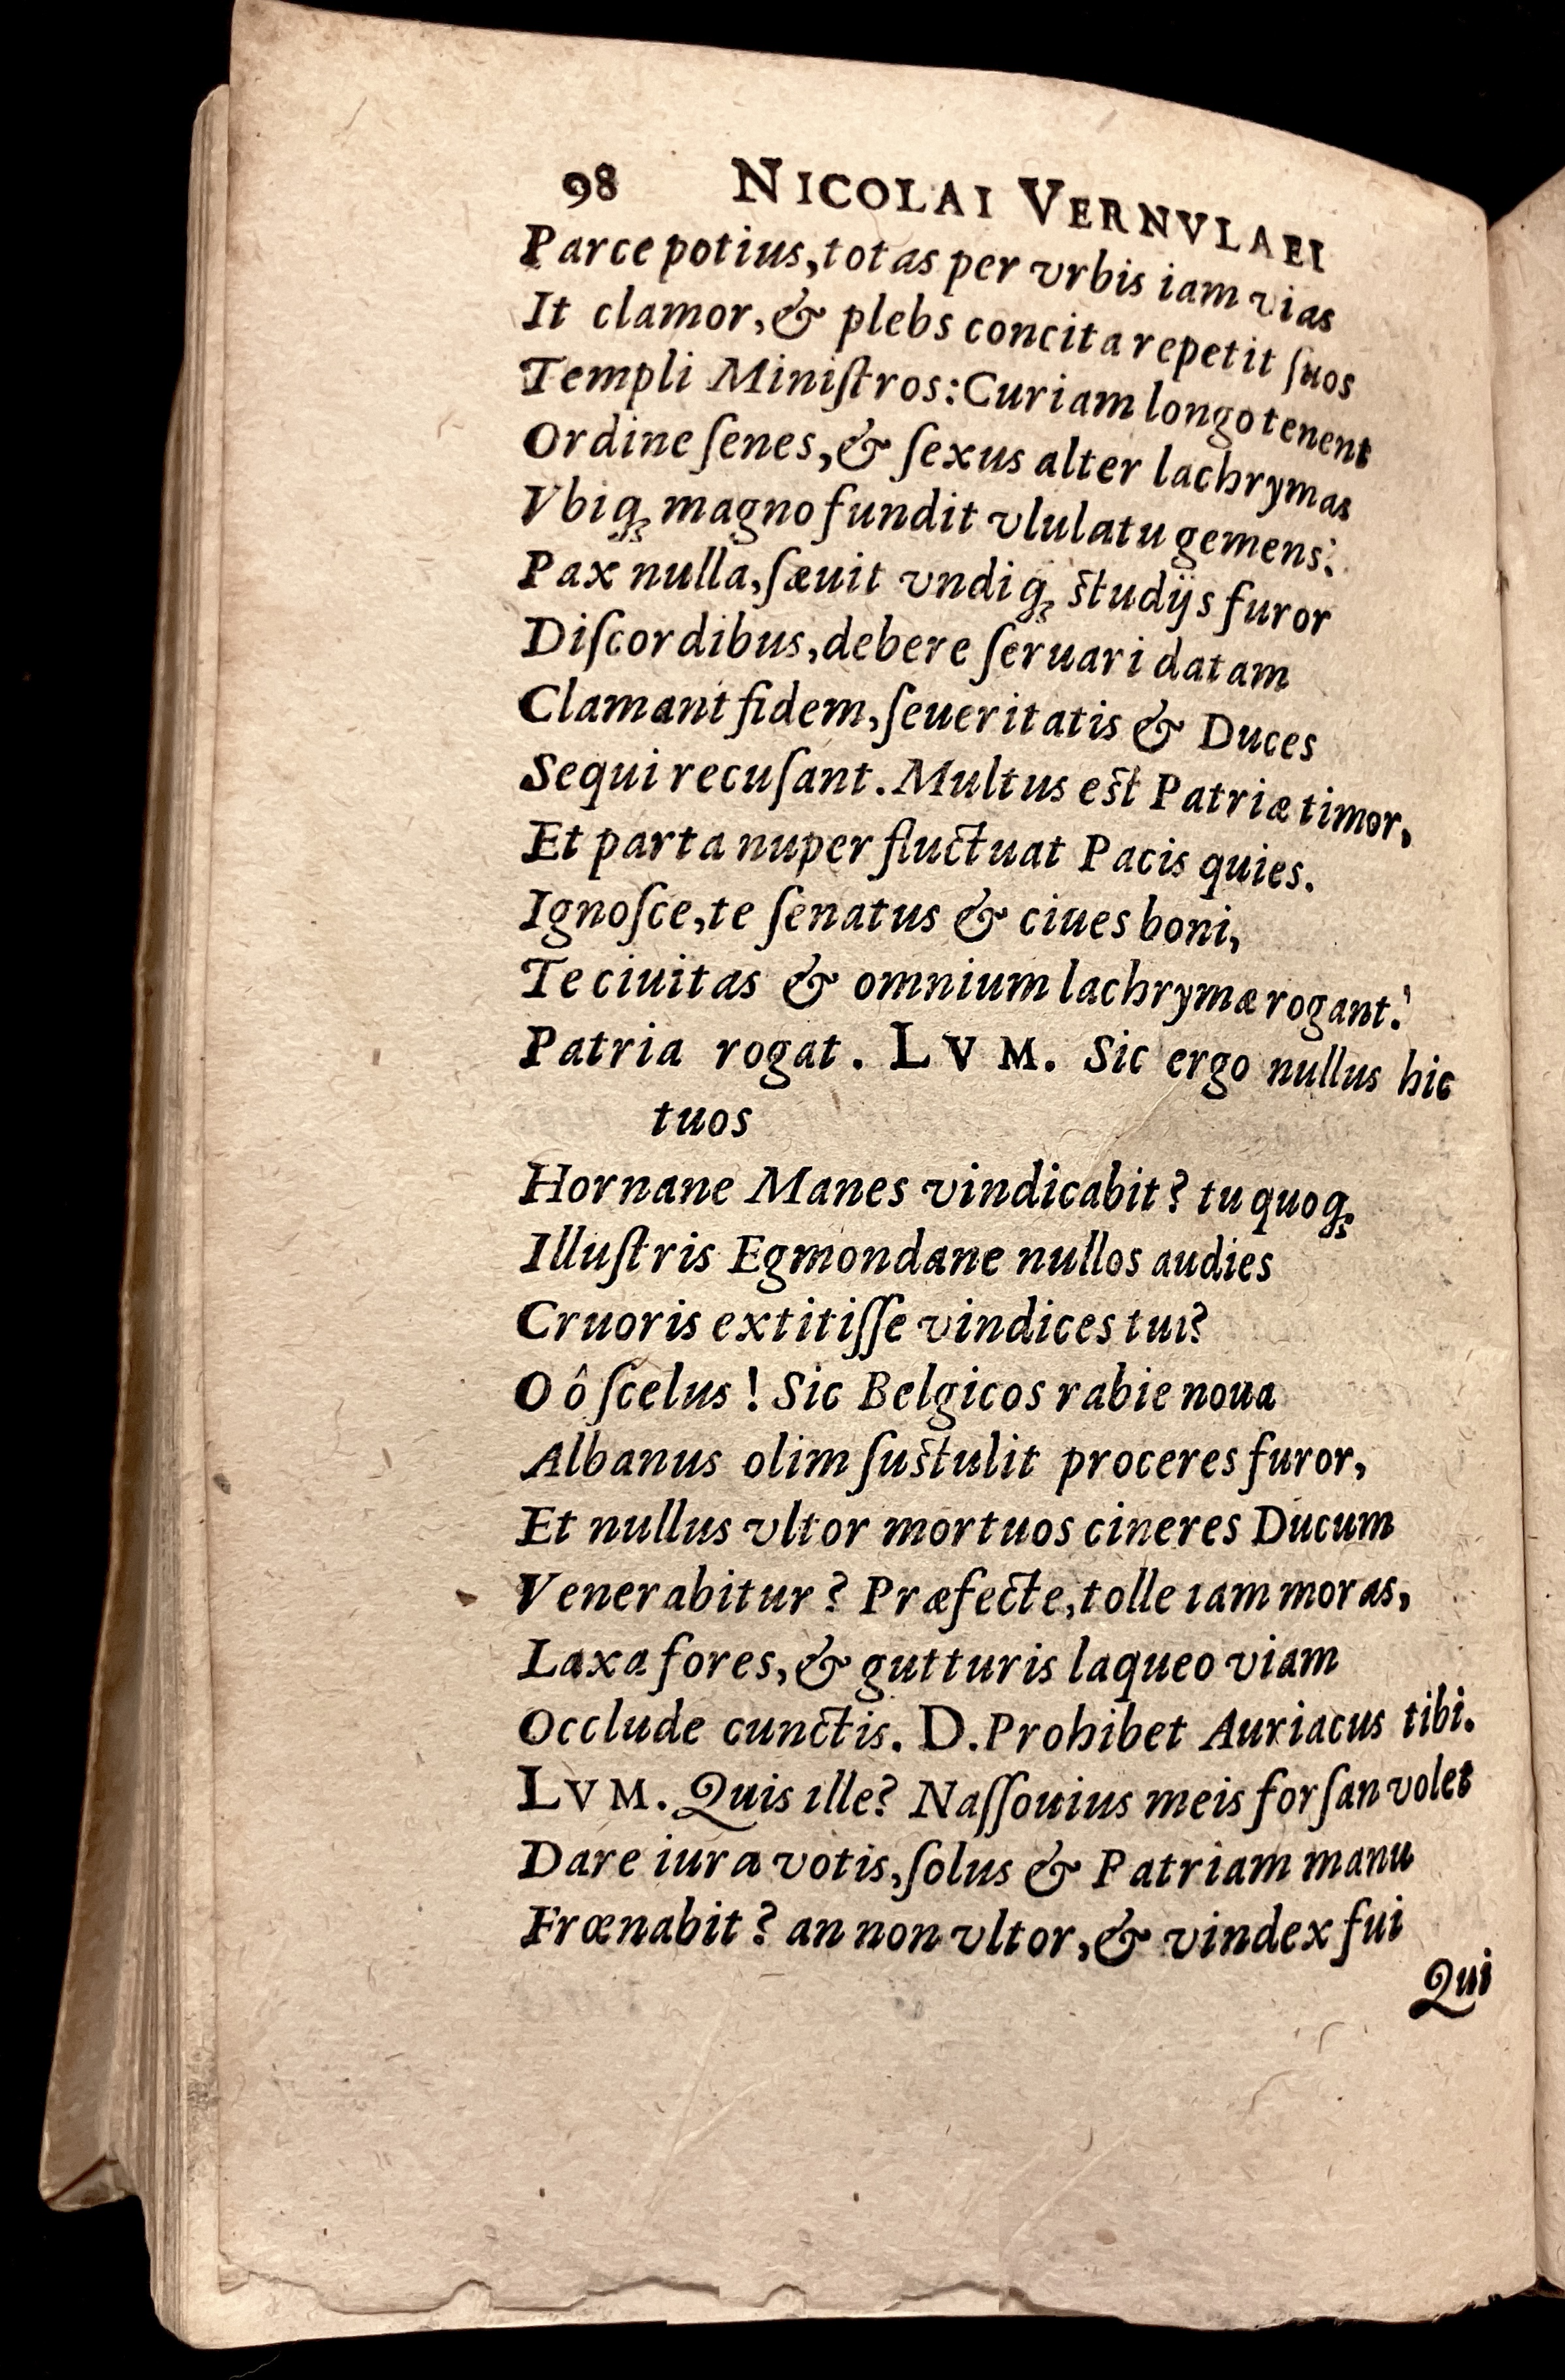 98 NICOLAI VERNVLAEI
Parce potius, totas per vrbis iam vias
It clamor, & plebs concita repetit ſuos
Templi Miniſtros: Curiam longo tenent
Ordine ſenes, & ſexus alter lachrymas
Vbiq; magno fundit vlulatu gemens:
Pax nulla, ſæuit vndiq; studijs furor
Diſcordibus, debere ſeruari datam
Clamant fidem, ſeueritatis & Duces
Sequi recuſant. Multus est Patriæ timor,
Et parta nuper fluctuat Pacis quies.
Ignoſce, te ſenatus & ciues boni,
Te ciuitas & omnium lachrymæ rogant:
Patria rogat. LVM. Sic ergo nullus hic
tuos
Hornane Manes vindicabit? tu quoq;
Illuſtris Egmondane nullos audies
Cruoris extitiſſe vindices tui?
O ô ſcelus! Sic Belgicos rabie noua
Albanus olim ſustulit proceres furor,
Et nullus vltor mortuos cineres Ducum
Venerabitur? Præfecte, tolle iam moras,
Laxa fores, & gutturis laqueo viam
Occlude cunctis. D. Prohibet Auriacus tibi.
LVM. Quis ille? Naſſouius meis forſan volet
Dare iura votis, ſolus & Patriam manu
Frœnabit? an non vltor, & vindex fui
Qui